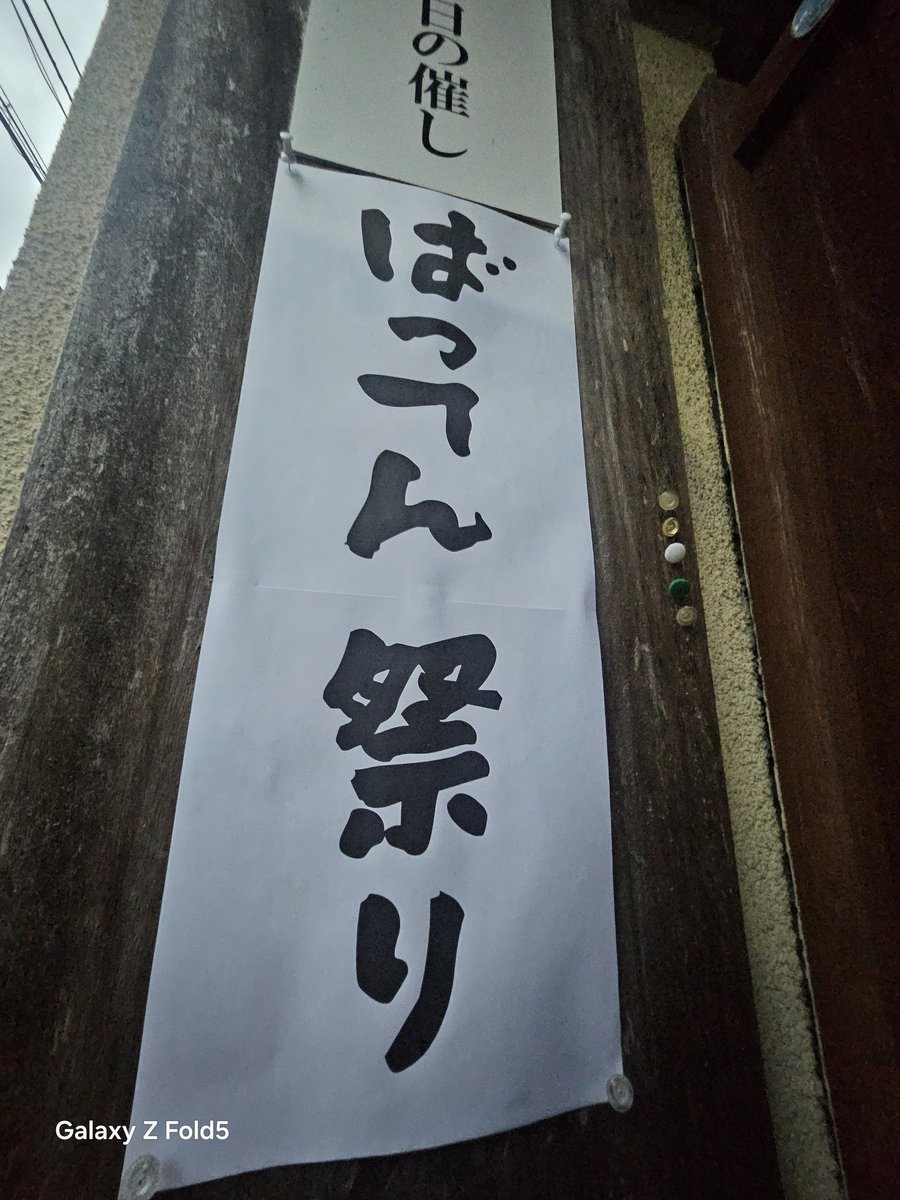 日の催し
ばってん祭り
Galaxy Z Fold5